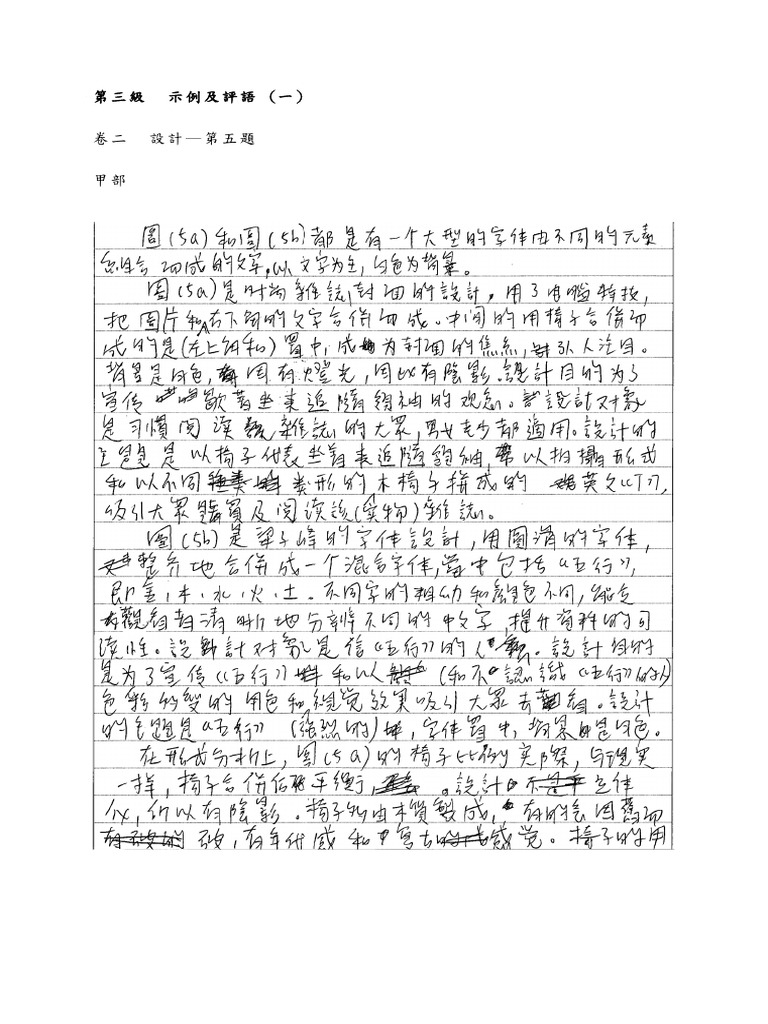 第三級 示例及評語 （一）
卷二 設計─第五題
甲部
圖(5a)和圖(5b)都是有一个大型的字体由不同的元素
組合而成的文字,以文字为主,白色为背景。
圖(5a)是时尚雜誌封面的設計,用了电腦特技,
把圖片和右下角的文字合併而成。中间的用椅子合併而
成的是(左上角和)置中,成为封面的焦点,引人注目。
背景是白色,因有燈光,因此有陰影。設計目的为了
宣传 歇著坐來追隨領袖的观念。設計对象
是习慣閱讀雜誌的大眾,男女老少都適用。設計的
主題是以椅子代表坐著來追隨領袖,以拍攝形式
和以不同类形的木椅子拼成的 英文《T》,
吸引大眾購買及閱读該(实物)雜誌。
圖(5b)是 子峰的字体設計,用圓滑的字体,
整齐地合併成一个混合字体,當中包括《五行》,
即金、木、水、火、土。不同字的粗幼和顏色不同,能夠
觀者清晰地分辨不同的中文字,提升資料的可
读性。設計对象是信《五行》的人。設計目的
是为了宣传《五行》和以(和不認識《五行》的人)
色彩 变的用色和視覚效果吸引大眾去 。設計
的主題是《五行》(強烈的),字体置中,背景是白色。
在形式分析上,圖(5a)的椅子比例实際,与現实
一样,椅子合併 平行。設計 立体
化,所以有陰影。椅子 由木質製成,有的 因舊而
破,有年代感和 古的感觉。椅子的用